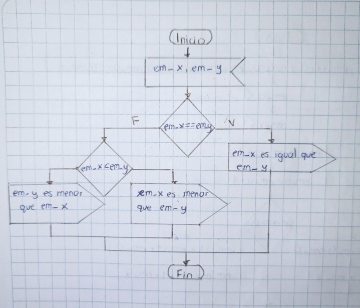 Inicio
em_x, em_y
em_x==em_y
F
V
em_x es igual que
em_y
em_x<em_y
em_y es menor
que em_x
em_x es menor
que em_y
Fin